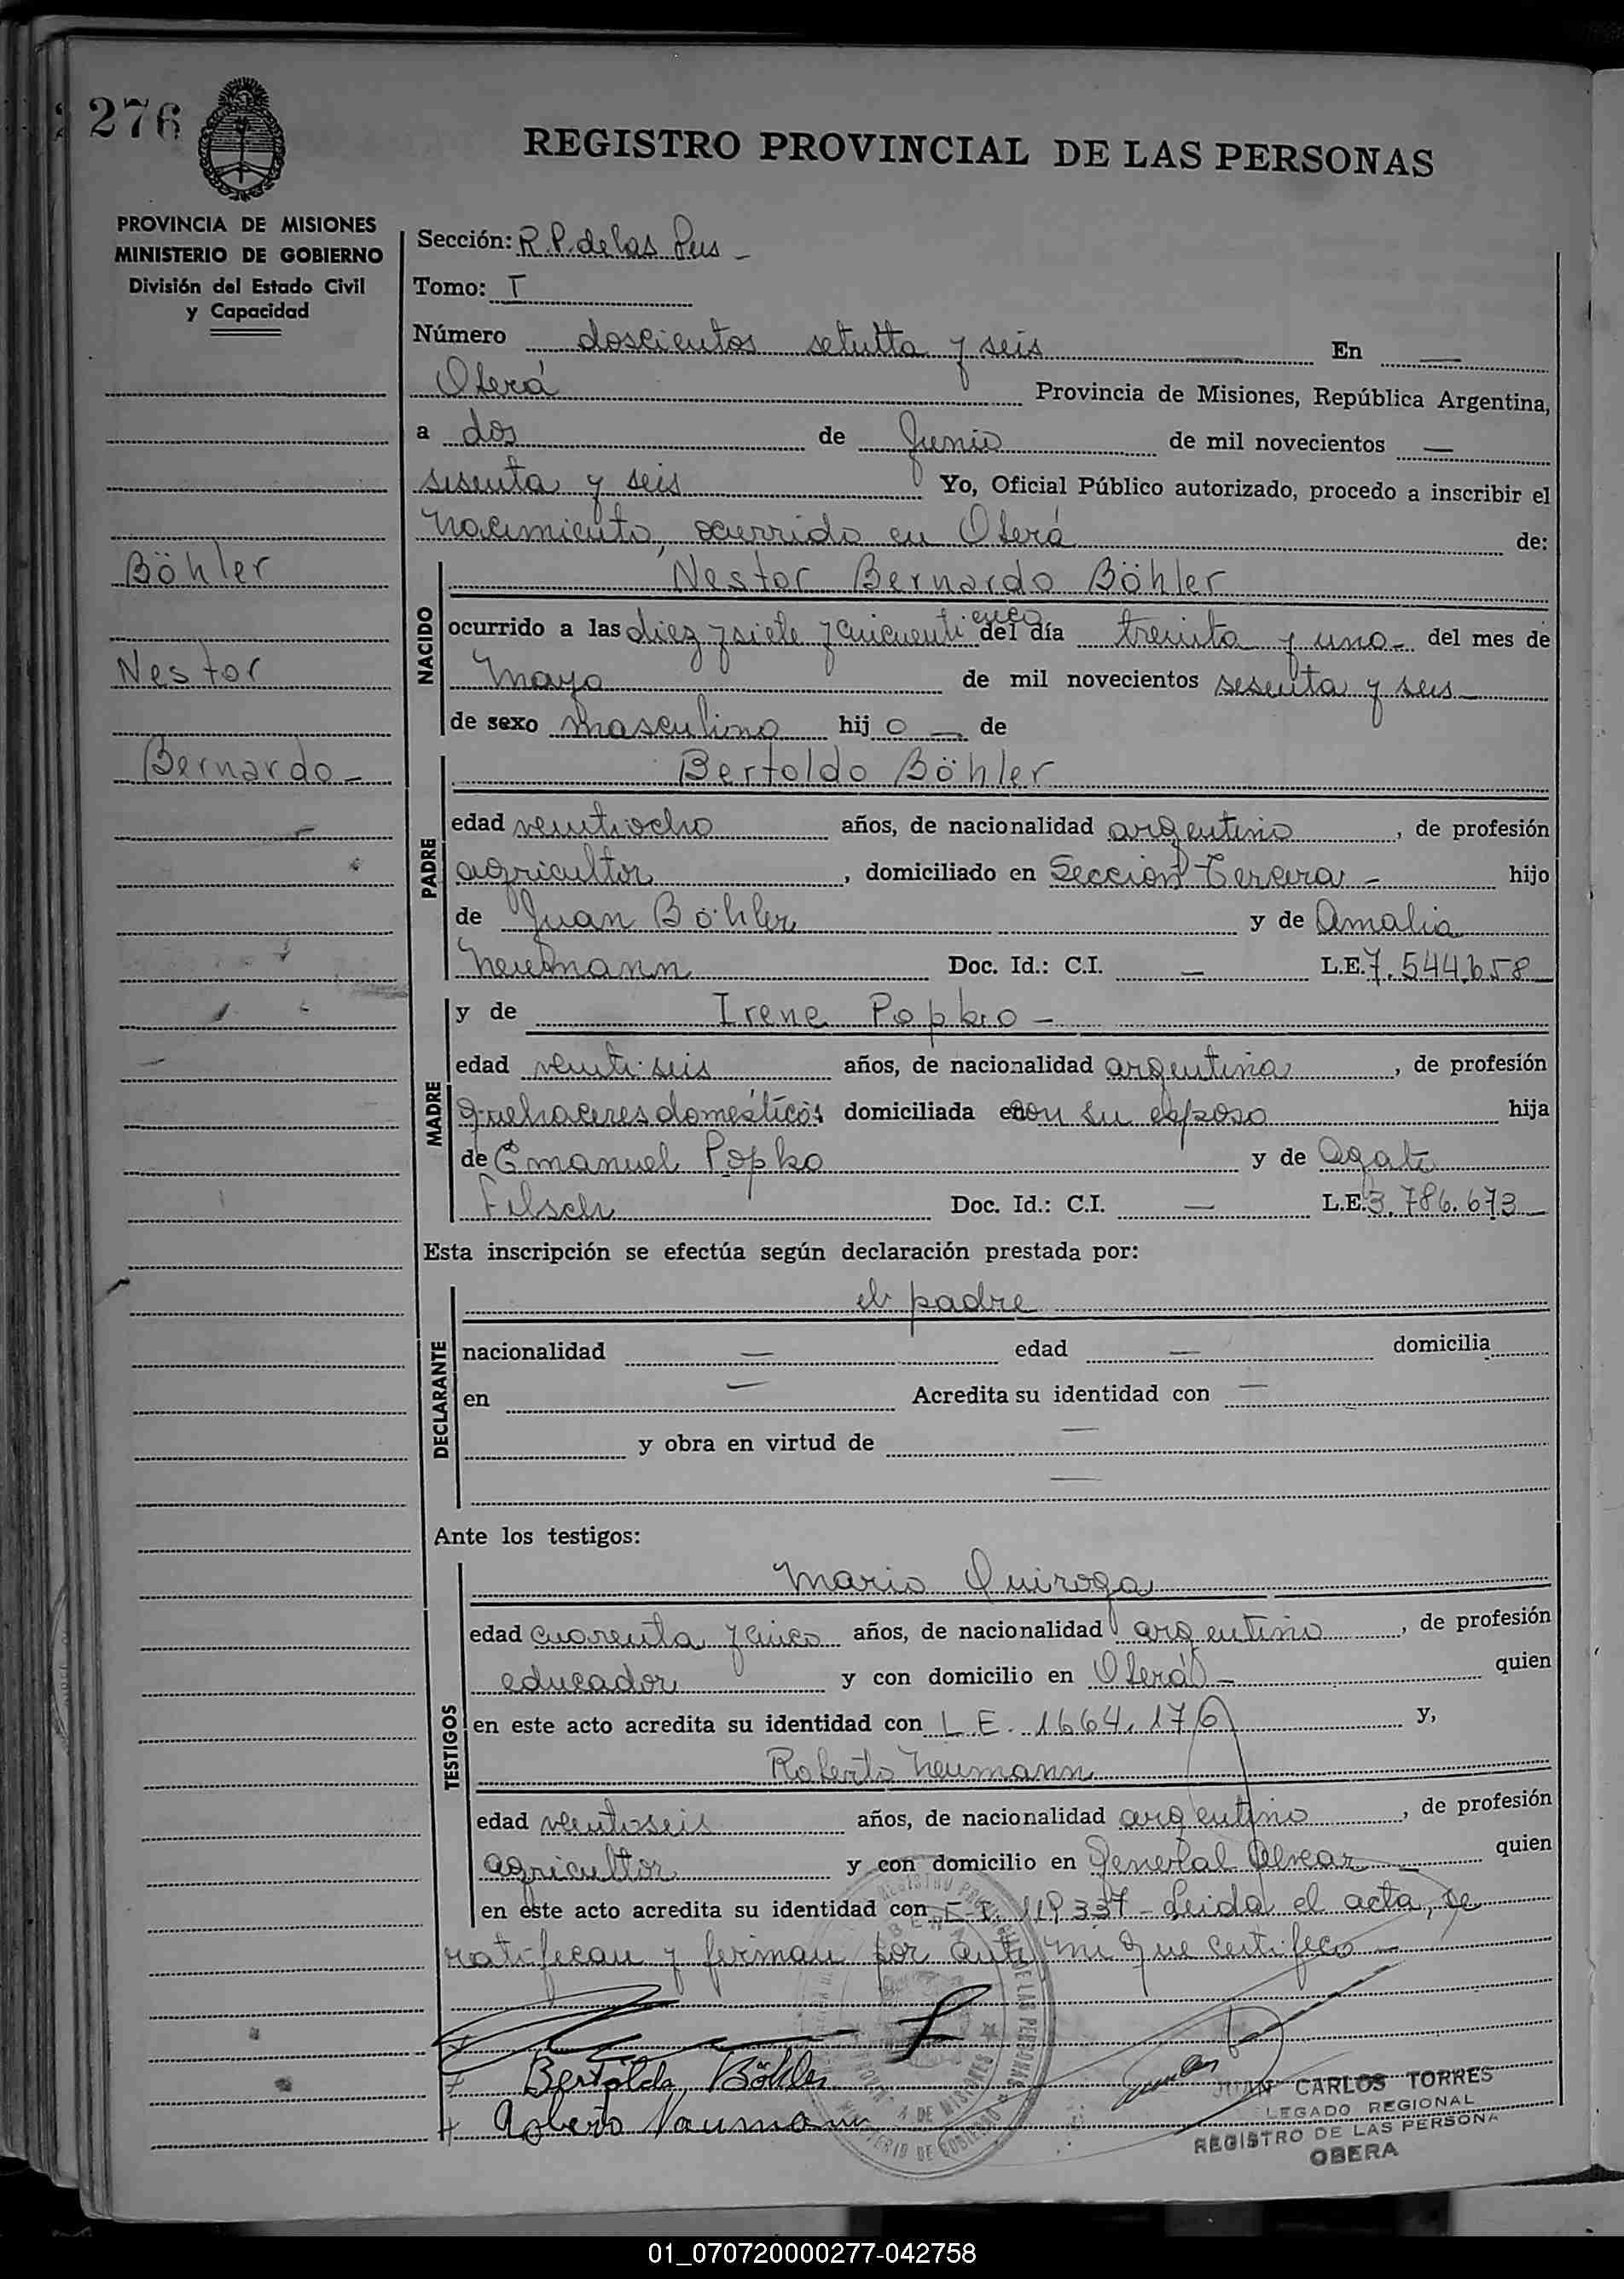 276
REGISTRO PROVINCIAL DE LAS PERSONAS
PROVINCIA DE MISIONES
MINISTERIO DE GOBIERNO
División del Estado Civil
y Capacidad
Böhler
Nestor
Bernardo-
Sección: R.P. de las Pers -
Tomo: I
Número doscientos setenta y seis — En —
Oberá Provincia de Misiones, República Argentina,
a dos de Junio de mil novecientos —
sesenta y seis Yo, Oficial Público autorizado, procedo a inscribir el
nacimiento, ocurrido en Oberá de:
NACIDO
Nestor Bernardo Böhler
ocurrido a las diez y siete y cincuenti cinco del día treinta y uno - del mes de
Mayo de mil novecientos sesenta y seis
de sexo masculino hij o — de
PADRE
Bertoldo Böhler
edad veintiocho años, de nacionalidad argentino, de profesión
agricultor, domiciliado en Sección Tercera - hijo
de Juan Böhler y de Amalia
Neumann Doc. Id.: C.I. — L.E. 7.544.658
MADRE
y de Irene Popko -
edad veintiseis años, de nacionalidad argentina, de profesión
quehaceres domésticos domiciliada en con su esposo hija
de Emanuel Popko y de Agata
Doc. Id.: C.I. — L.E. 3.786.673
Esta inscripción se efectúa según declaración prestada por:
DECLARANTE
el padre
nacionalidad — edad — domicilia
en — Acredita su identidad con —
y obra en virtud de —
—
Ante los testigos:
TESTIGOS
Mario Quiroga
edad cuarenta y cinco años, de nacionalidad argentino, de profesión
educador y con domicilio en Oberá - quien
en este acto acredita su identidad con L.E. 1664.176 y,
Roberto Neumann
edad veintiseis años, de nacionalidad argentino, de profesión
agricultor y con domicilio en General Alvear quien
en este acto acredita su identidad con 119337 - Leida el acta, se
ratifican y firman por ante mi que certifico
Bertoldo Böhler
Roberto Naumann
JUAN CARLOS TORRES
LEGADO REGIONAL
REGISTRO DE LAS PERSONA
OBERA
01_070720000277-042758